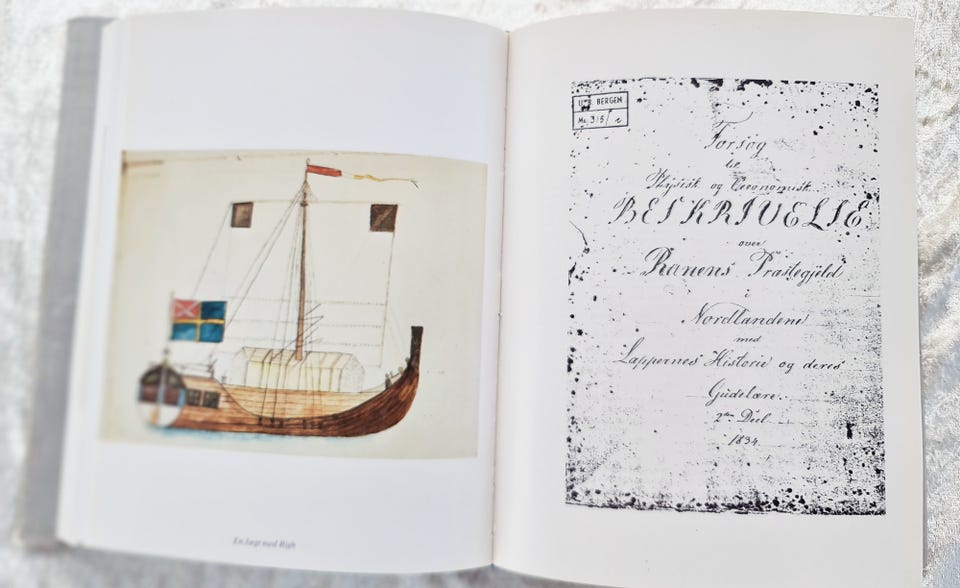 En Jægt med Bigb
U.B. BERGEN
Ms. 315/ 2
Forsøg
til
Physisk og Oeconomisk
BESKRIVELSE
over
Ranens Præstegjeld
i
Nordlandene
med
Lappernes Historie og deres
Gudelære.
2den Deel
1834.